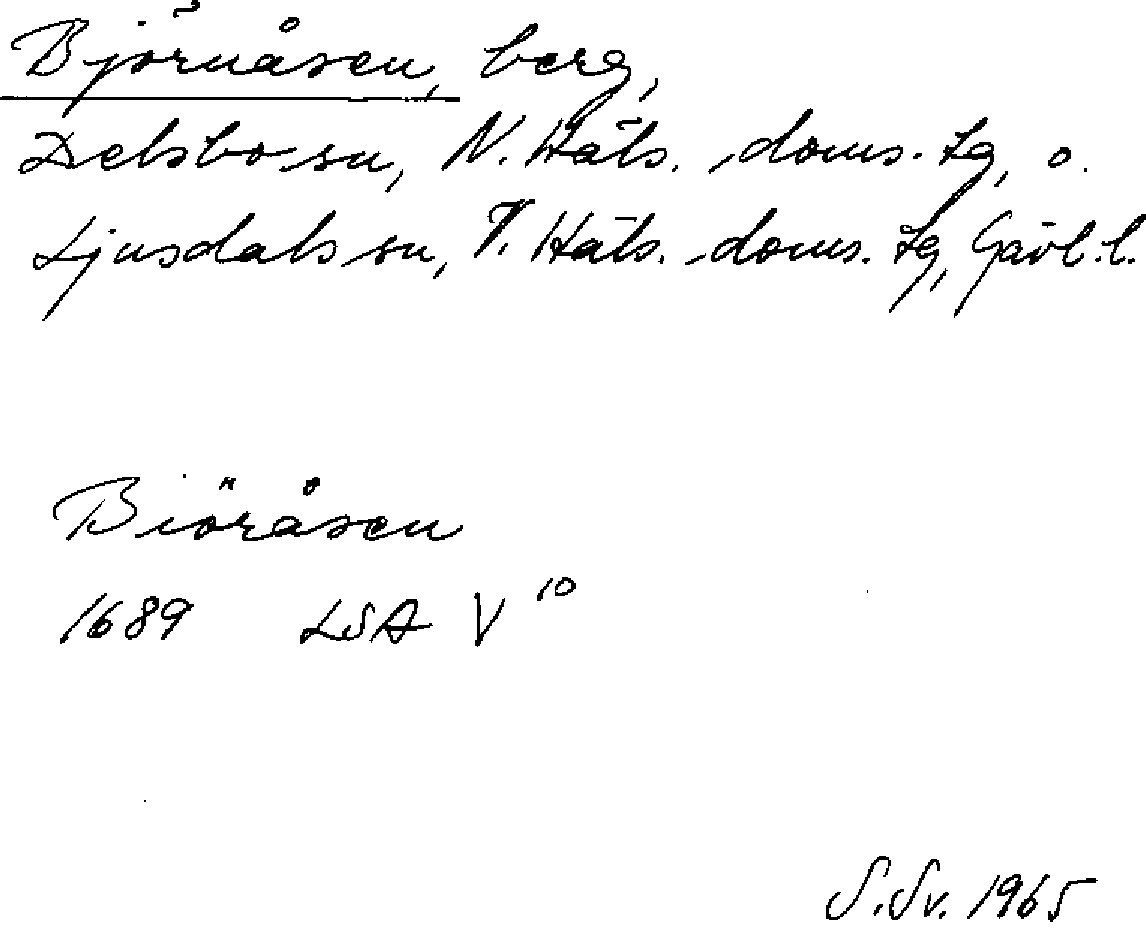 Björnåsen, berg,
Delsbo sn, N. Häls. doms. tg, o.
Ljusdals sn, V. Häls. doms. tg, Gävl. l.
Biöråsen
1689 LSA V 10
S. Sv. 1965